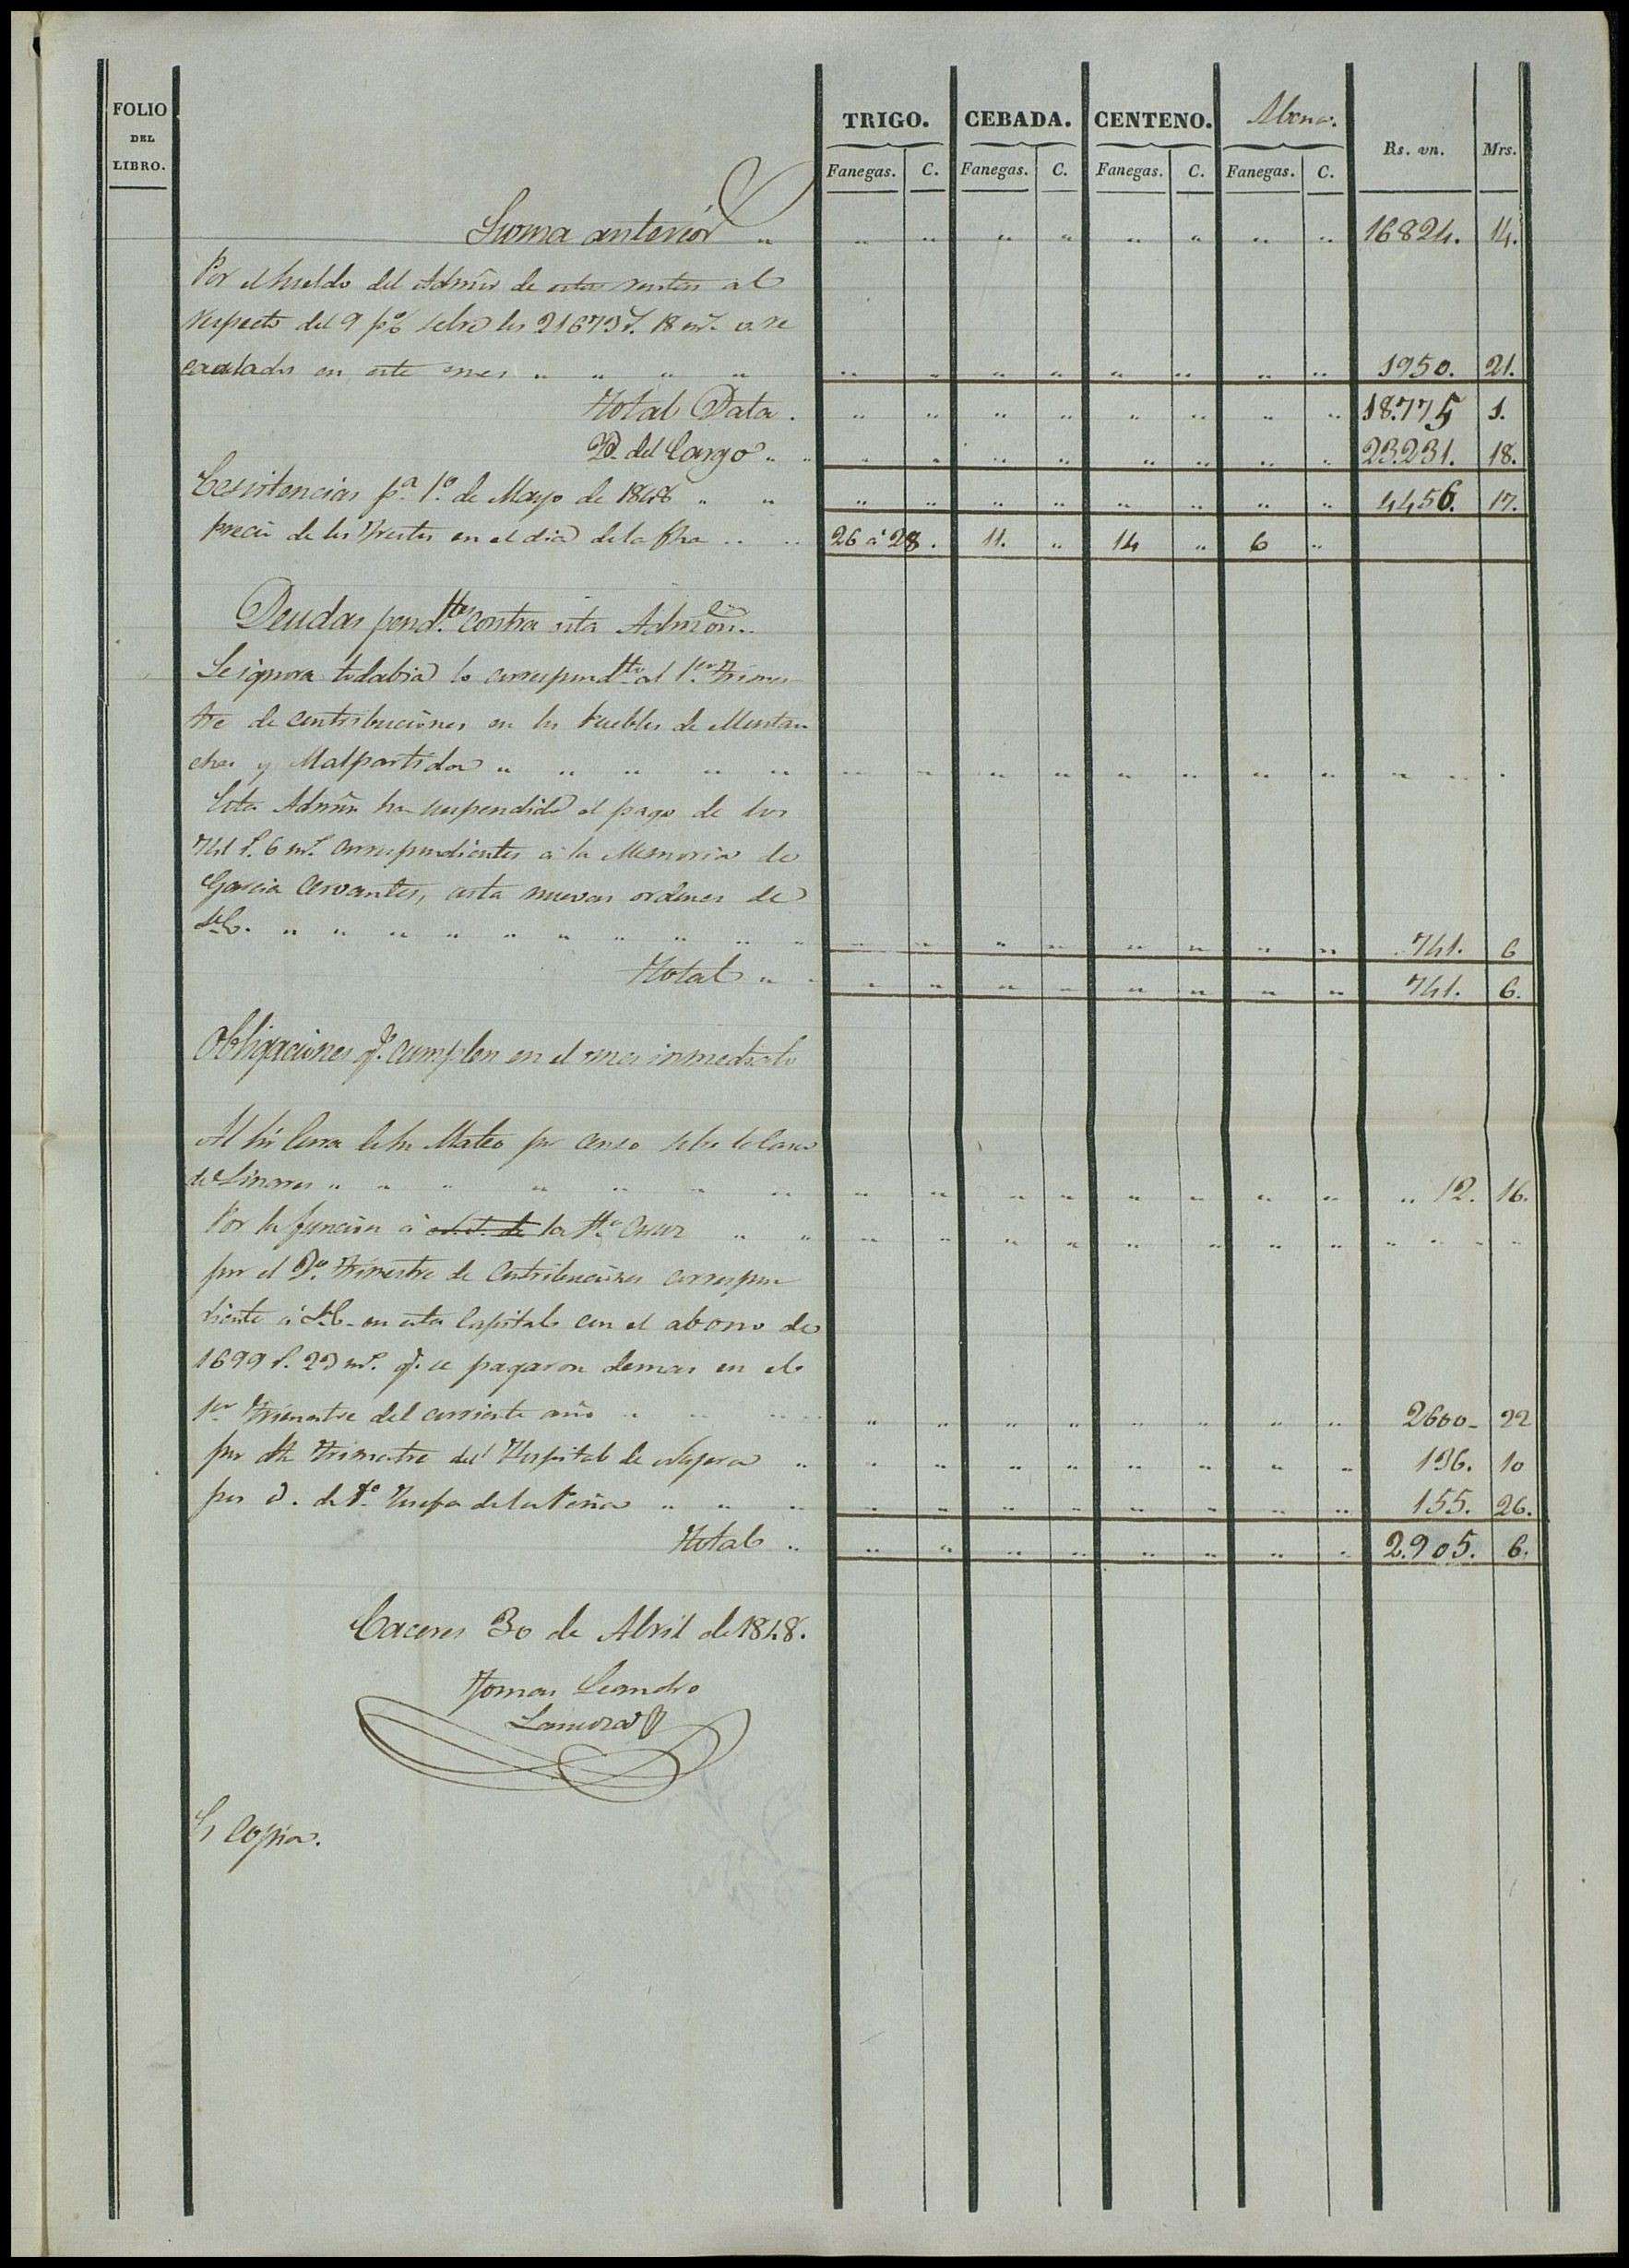 FOLIO
DEL
LIBRO.
TRIGO. CEBADA. CENTENO. Abena. Rs. vn. Mrs.
Fanegas. C. Fanegas. C. Fanegas. C. Fanegas. C.
Suma anterior 16824. 14.
Por el sueldo del Admor de estas rentas al
respecto del 9 p% sobre los 21673 r. 18 mr. vn re
caudados en este mes 1950. 21.
Total Data. 18.775 1.
Yd. del Cargo 23.231. 18.
Ecsistencias pa. 1o. de Mayo de 1848 4456. 17.
precio de los frutos en el dia de la fha 26 a 28. 11. 14 6
Deudas pend.tes contra esta Admcion.
Se ignora todabia lo correspondte al 1er trimes
tre de contribuciones en los Pueblos de Montan
chez y Malpartida
Esta Admon ha suspendido el pago de los
741 r. 6 mr. correspondientes a la Memoria de
Garcia Cervantes, asta nuevas ordenes de
S.E. 741. 6
Total 741. 6.
Obligaciones q.e cumplen en el mes inmediato
Al Sr. Cura de Sn Mateo por censo sobre la Casa
de Linares 12. 16.
Por la funcion a la Sta. Cruz
por el 2o. trimestre de Contribuciones correspon
diente a S.E. en esta Capital con el abono de
1699 r. 23 mr. q.e se pagaron demas en el
1er trimestre del corriente año 2600- 22
por del trimestre del Hospital de 136. 10
por id. de Da. Josefa de la Peña 155. 26.
Total 2.905. 6.
Caceres 30 de Abril de 1848.
Tomas Leandro
Es Copia.